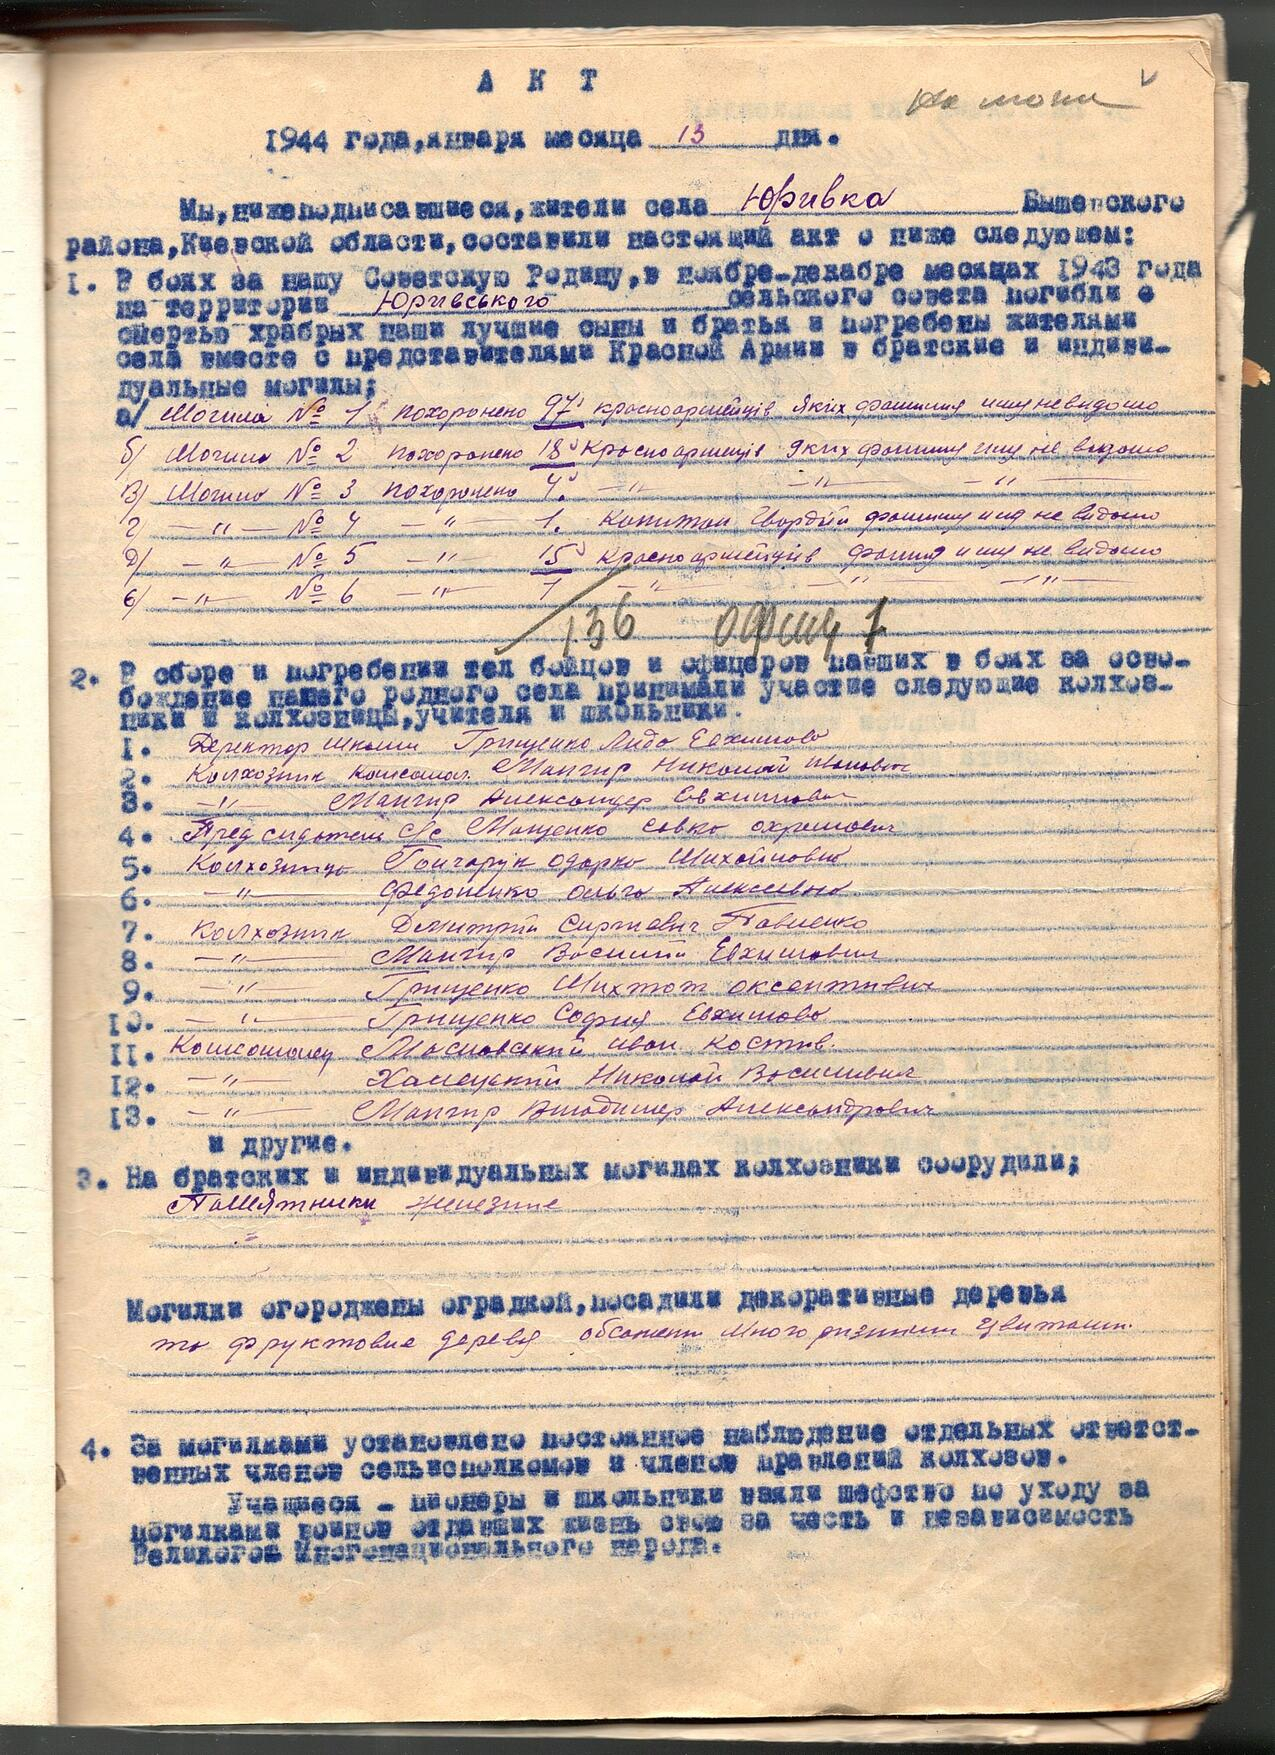 А К Т
1944 года, января месяца 13 дня.
Мы, нижеподписавшиеся, жители села Юривка Бышевского
района, Киевской области, составили настоящий акт о ниже следующем:
1. В боях за нашу Советскую Родину, в ноябре-декабре месяцах 1943 года
на территории Юрівського сельского совета погибли с
смертью храбрых наши лучшие сыны и братья и погребены жителями
села вместе с представителями Красной Армии в братские и индиви-
дуальные могилы:
а/ Могила № 1 похоронено 97 красноармейців яких фамилия и имя невидомо
б) Могила № 2 похоронено 18 красноармеців яких фамилия и имя не видомо
в) Могила № 3 похоронено 4. -"- -"- -"-
г) -"- № 4 -"- 1. Капитан Гвардій фамилия имя не видомо
д) -"- № 5 -"- 15 красноармейців фамилия и имя не видомо
е) -"- № 6 -"- 1 -"- -"- -"-
136 офиц 1
2. В сборе и погребении тел бойцов и офицеров павших в боях за осво-
бождение нашего родного села принимали участие следующие колхоз-
ники и колхозницы, учителя и школьники:
1. Деректор школи Грищенко Лида Евхимовна
2. Колхозник комсомол. Мангир Николай Иванович
3. -"- Мангир Александр Евхимович
4. Председатель с/с Мащенко Савка
5. Колхозница Гончарук Одарка Михайловна
6. -"- Федоненко Ольга Алексеевна
7. Колхозник Дмитрий Сиргиевич Павленко
8. -"- Мангир Василий Евхимович
9. -"- Грищенко
10. -"- Грищенко София Евхимовна
11. Комсомолец Масловский Иван Костив.
12. -"- Николай Василиевич
13. -"- Мангир Владимир Александрович
и другие.
3. На братских и индивидуальных могилах колхозники соорудили;
Памятники
Могилки огороджены оградкой, посадили декоративные деревья
та фруктовие дерева обсажени много цвитами.
4. За могилками установлено постоянное наблюдение отдельных ответст-
венных членов сельисполкомов и членов правлений колхозов.
Учащиеся - пионеры и школьники взяли шефство по уходу за
могилками воинов отдавших жизнь свою за честь и независимость
Великого Многонационального народа.